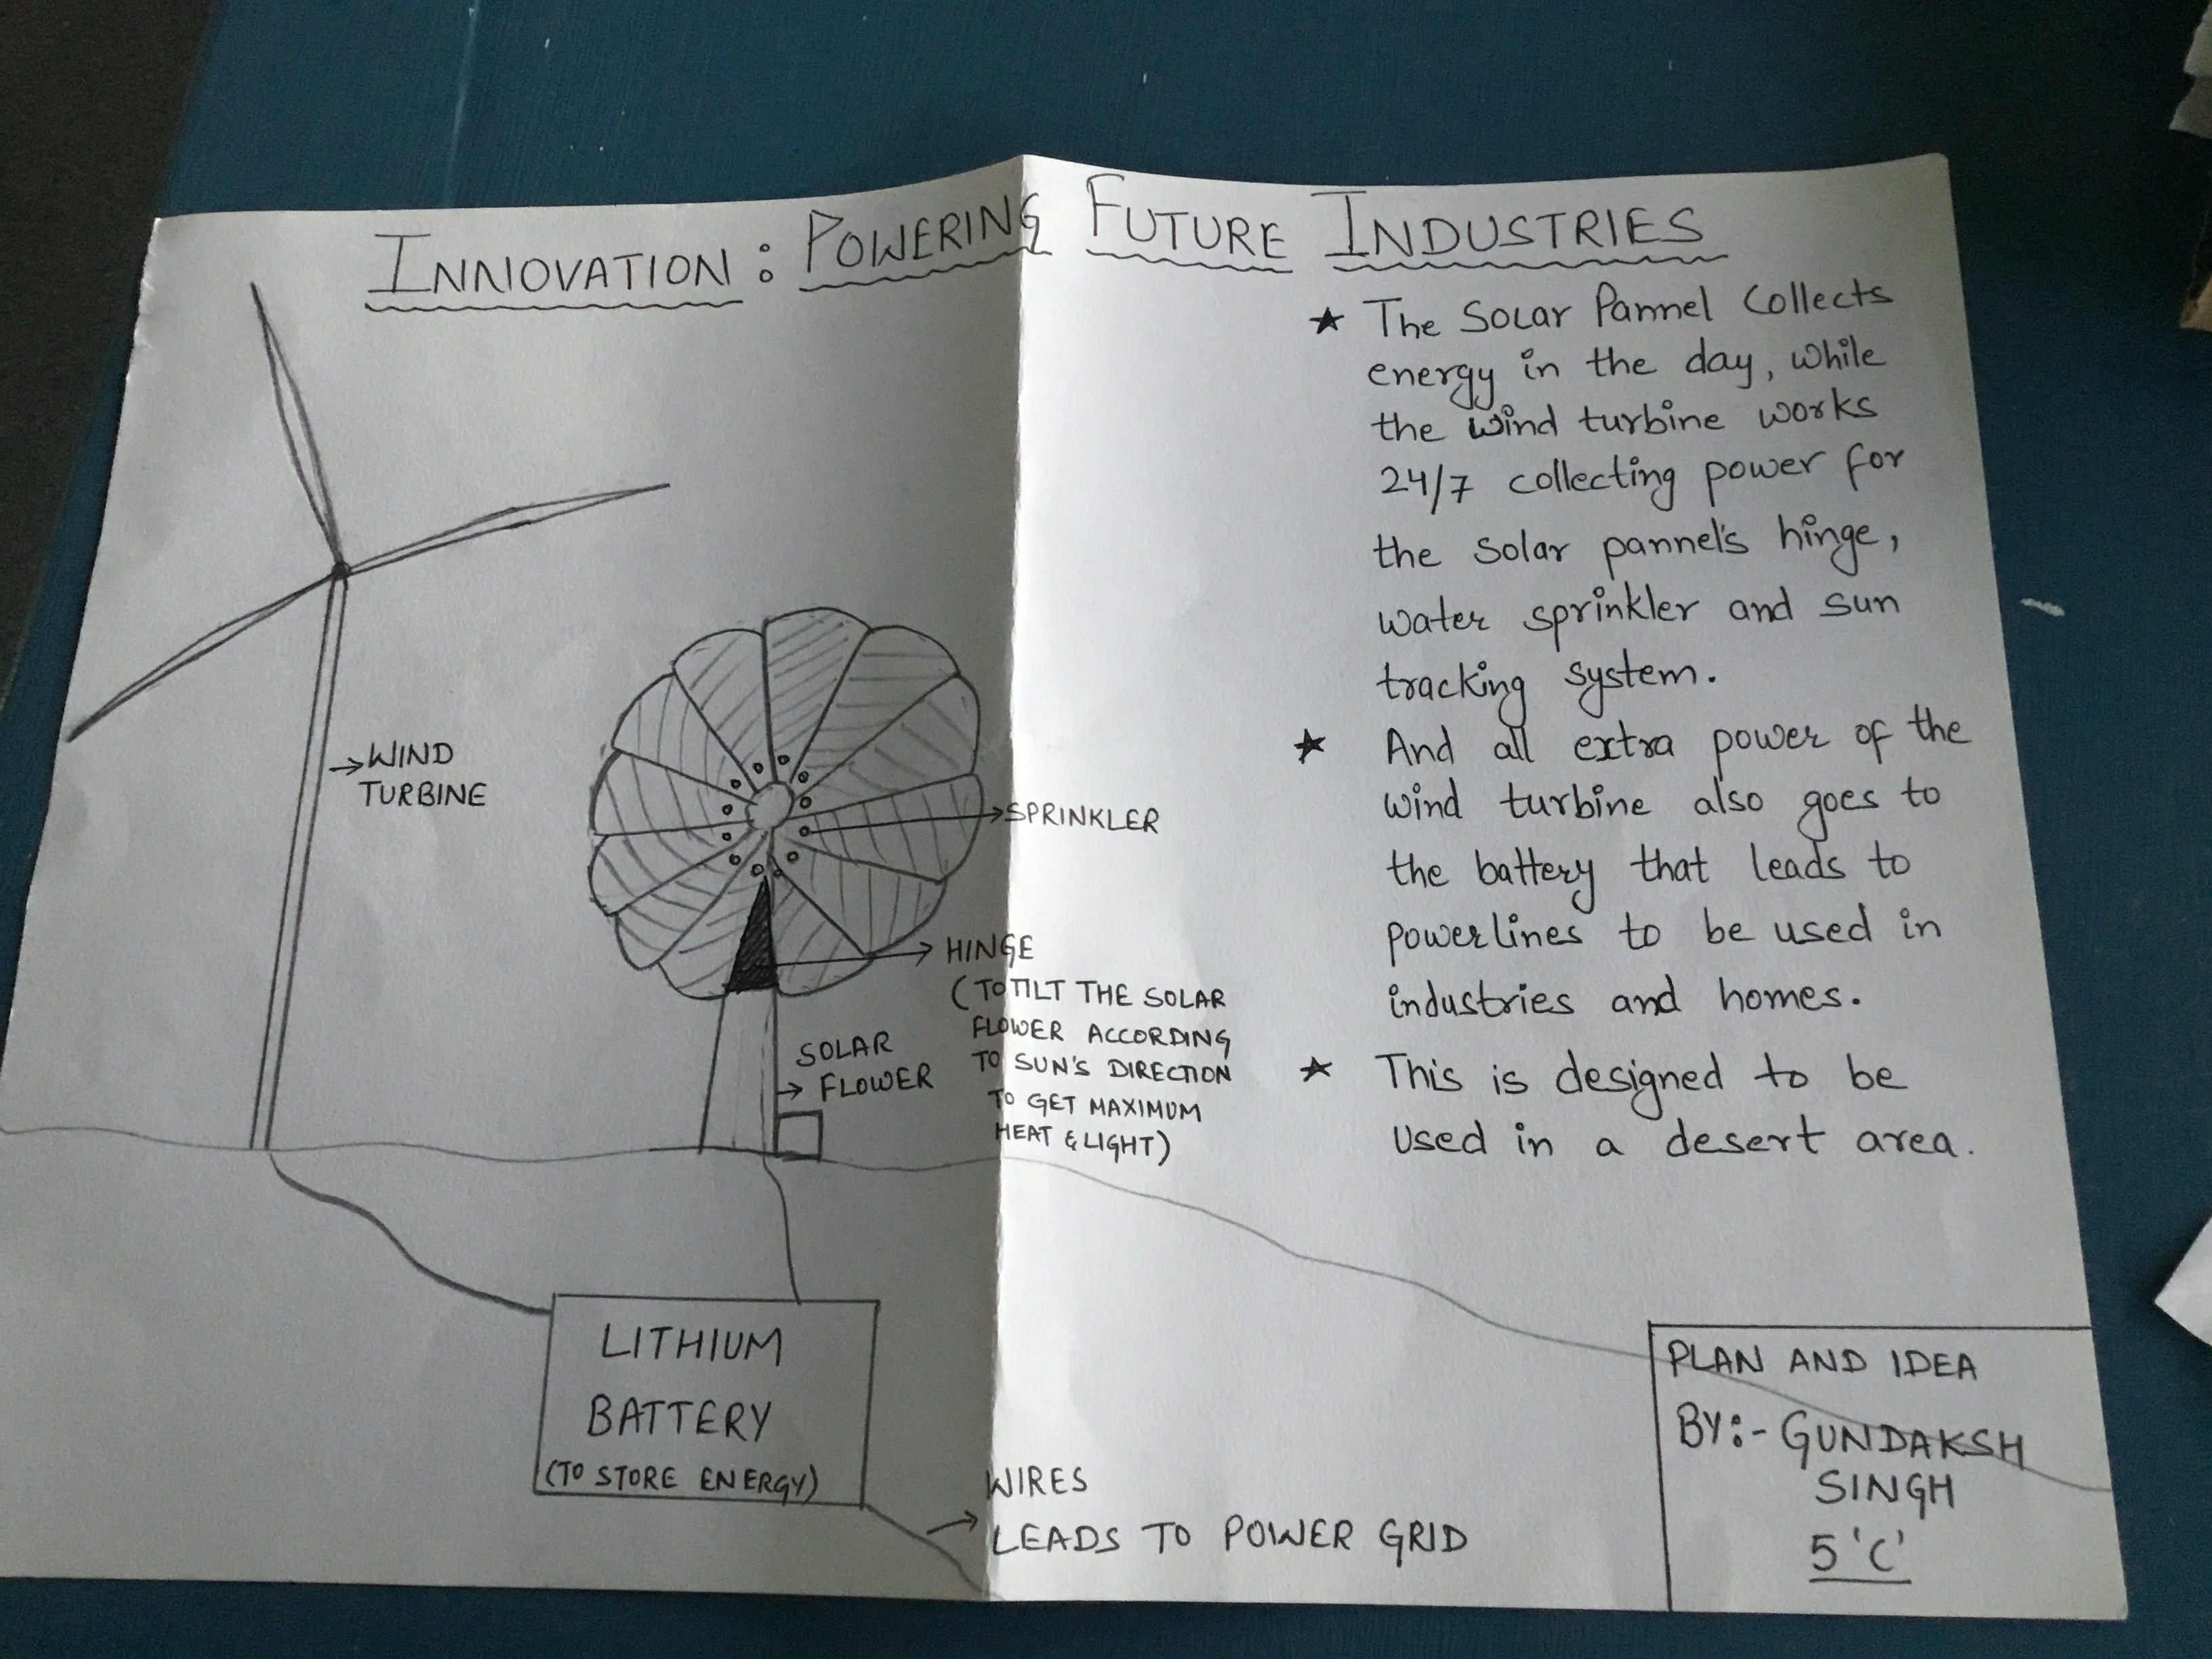 INNOVATION : POWERING FUTURE INDUSTRIES
★ The Solar Pannel Collects
energy in the day, while
the wind turbine works
24/7 collecting power for
the solar pannel's hinge,
water sprinkler and sun
tracking system.
★ And all extra power of the
wind turbine also goes to
the battery that leads to
powerlines to be used in
industries and homes.
★ This is designed to be
used in a desert area.
→WIND
TURBINE
→SPRINKLER
→ HINGE
(TO TILT THE SOLAR
FLOWER ACCORDING
TO SUN'S DIRECTION
TO GET MAXIMUM
HEAT & LIGHT)
SOLAR
→ FLOWER
LITHIUM
BATTERY
(TO STORE ENERGY)
→ WIRES
LEADS TO POWER GRID
PLAN AND IDEA
BY:- GUNDAKSH
SINGH
5 'C'